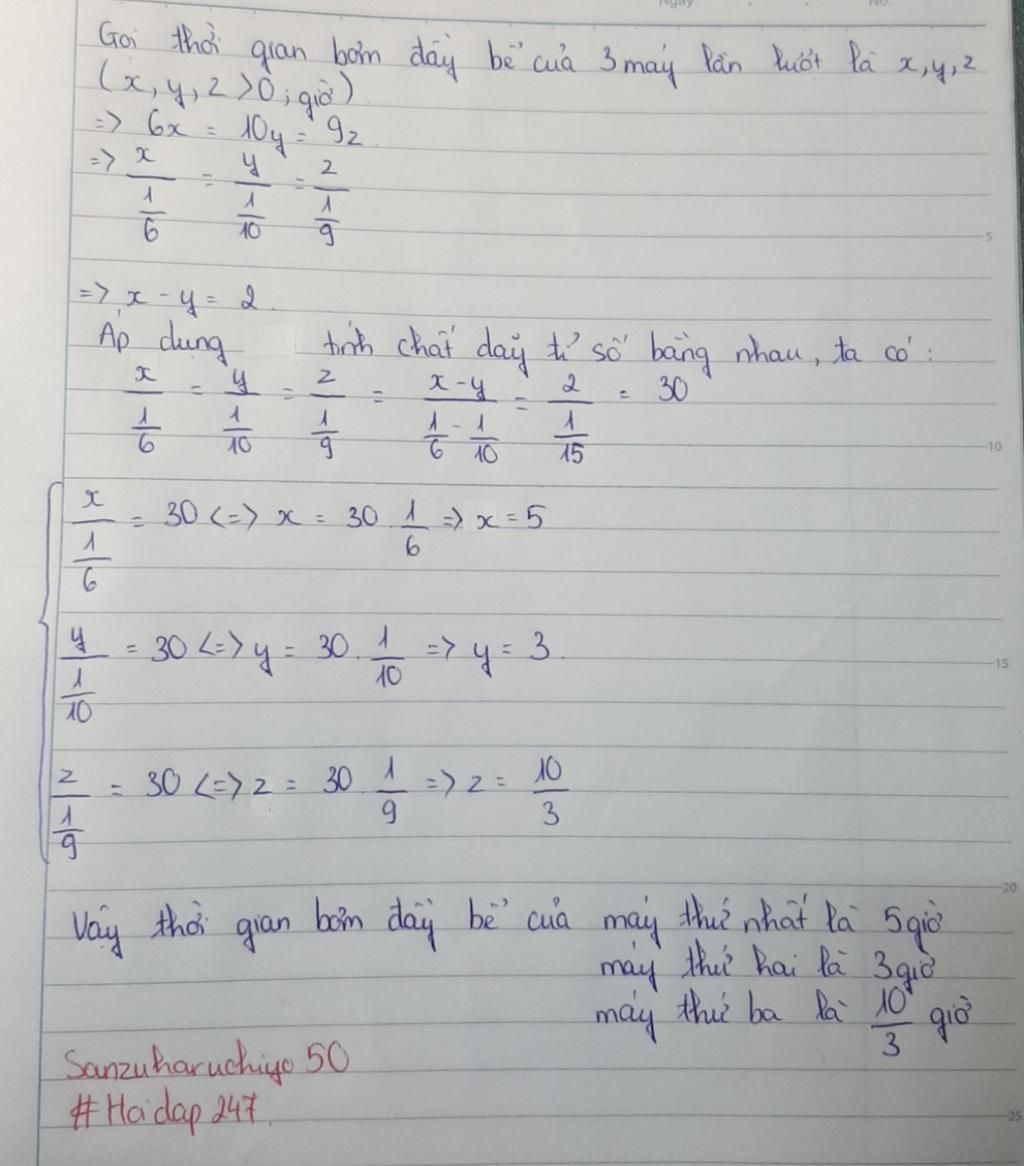 Ngày No.
Gọi thời gian bơm đầy bể của 3 máy lần lướt là x, y, z
(x, y, z > 0; giờ)
=> 6x = 10y = 9z
=> x/(1/6) = y/(1/10) = z/(1/9)
5
=> x - y = 2
Áp dụng tính chất dãy tỉ số bằng nhau, ta có:
x/(1/6) = y/(1/10) = z/(1/9) = (x - y)/(1/6 - 1/10) = 2/(1/15) = 30
10
x/(1/6) = 30 <=> x = 30 . 1/6 => x = 5
y/(1/10) = 30 <=> y = 30 . 1/10 => y = 3.
15
z/(1/9) = 30 <=> z = 30 . 1/9 => z = 10/3
20
Vậy thời gian bơm đầy bể của máy thứ nhất là 5 giờ
máy thứ hai là 3 giờ
máy thứ ba là 10/3 giờ
Sanzuharuchiyo 50
# Hoidap 247.
25